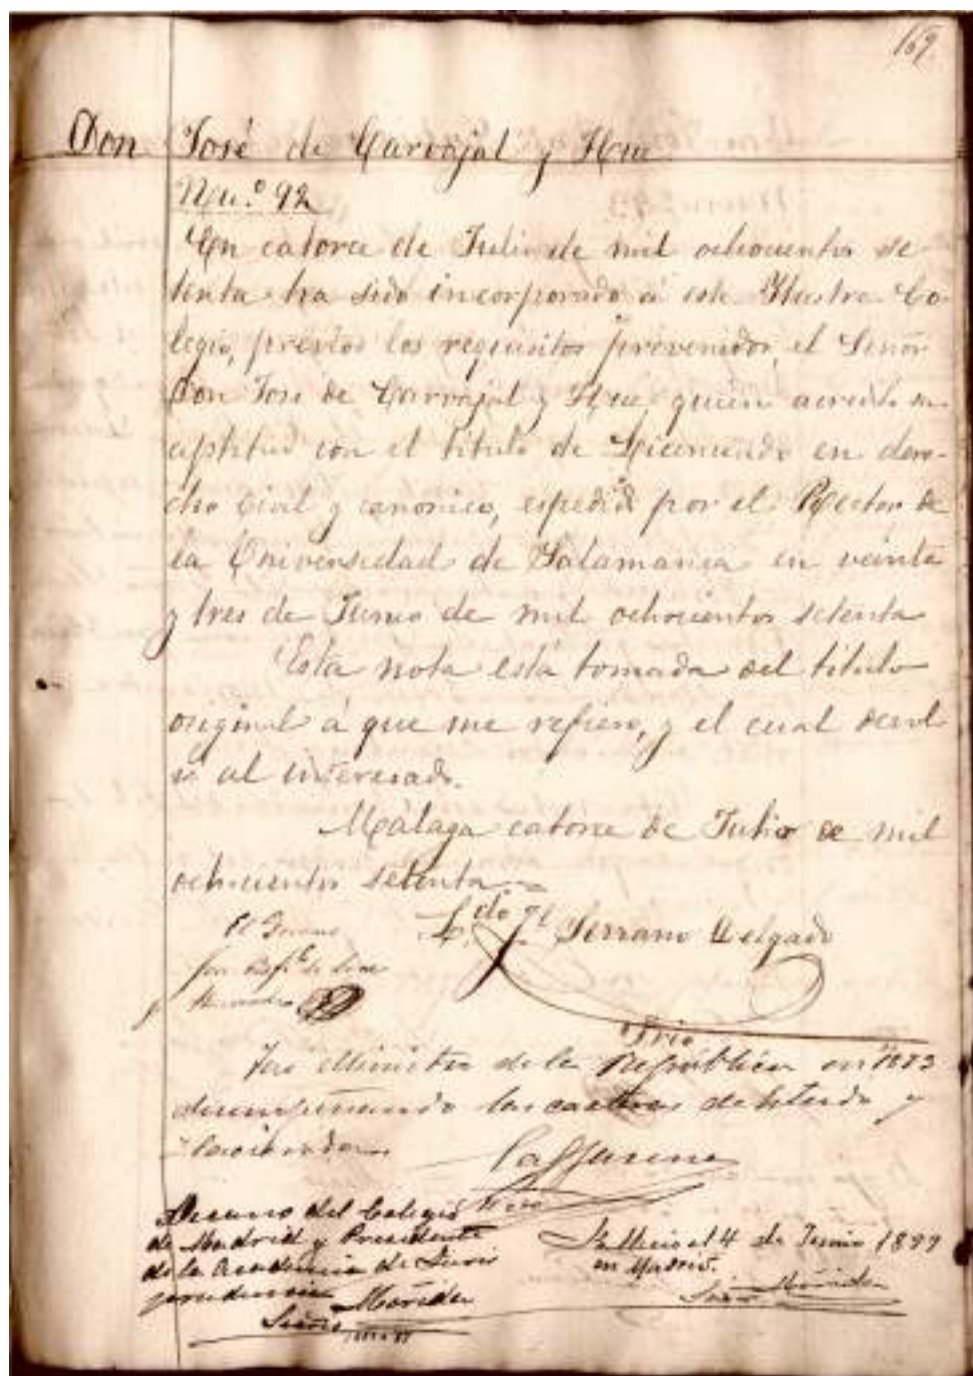 169
Don José de Carvajal y Hue
Nu.º 92
En catorce de Julio de mil ochocientos se
tenta ha sido incorporado á este Ilustre Co-
legio, prévios los requisitos prevenidos, el Señor
Don José de Carvajal y Hue, quien acreditó su
aptitud con el título de Licenciado en dere-
cho civil y canonico, espedido por el Rector de
la Universidad de Salamanca en veinte
y tres de Junio de mil ochocientos setenta
Esta nota está tomada del título
original á que me refiero, y el cual devol
ví al interesado.
Málaga catorce de Julio de mil
ochocientos setenta
El Decano
Ldo Serrano Delgado
Srio
Fué Ministro de la República en 1873
desempeñando las carteras de Estado y
Hacienda
Decano del Colegio
de Madrid y Presidente
de la Academia de Juris
prudencia
Falleció el 4 de Junio 1899
en Madrid.